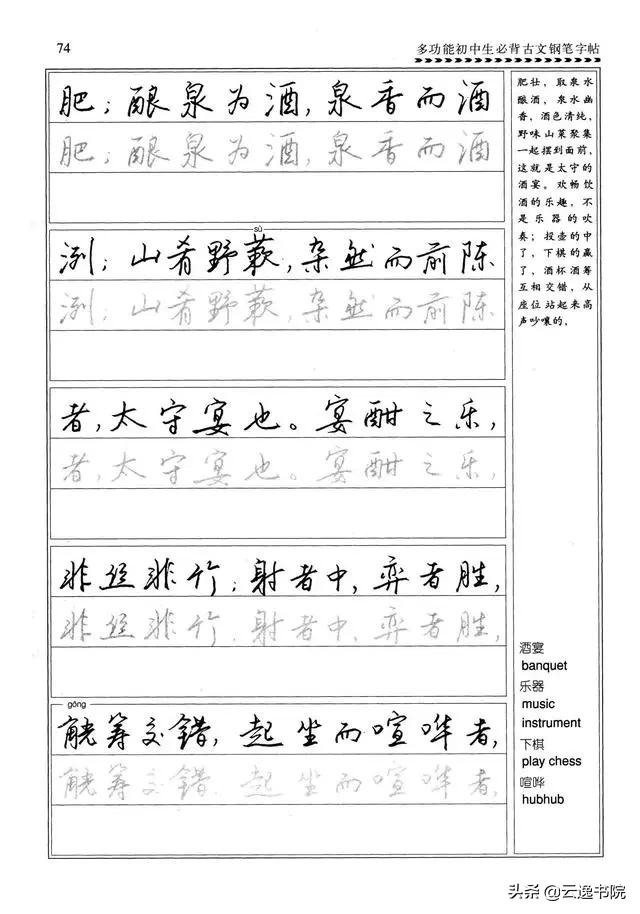 74
多功能初中生必背古文钢笔字帖
肥；酿泉为酒，泉香而酒
肥；酿泉为酒，泉香而酒
sù
洌；山肴野蔌，杂然而前陈
洌；山肴野蔌，杂然而前陈
者，太守宴也。宴酣之乐，
者，太守宴也。宴酣之乐，
非丝非竹；射者中，弈者胜，
非丝非竹；射者中，弈者胜，
gōng
觥筹交错，起坐而喧哗者，
觥筹交错，起坐而喧哗者，
肥壮，取泉水
酿酒，泉水幽
香，酒色清纯，
野味山菜聚集
一起摆到面前，
这就是太守的
酒宴。欢畅饮
酒的乐趣，不
是乐器的吹
奏；投壶的中
了，下棋的赢
了，酒杯酒筹
互相交错，从
座位站起来高
声吵嚷的，
酒宴
banquet
乐器
music
instrument
下棋
play chess
喧哗
hubhub
头条@云逸书院